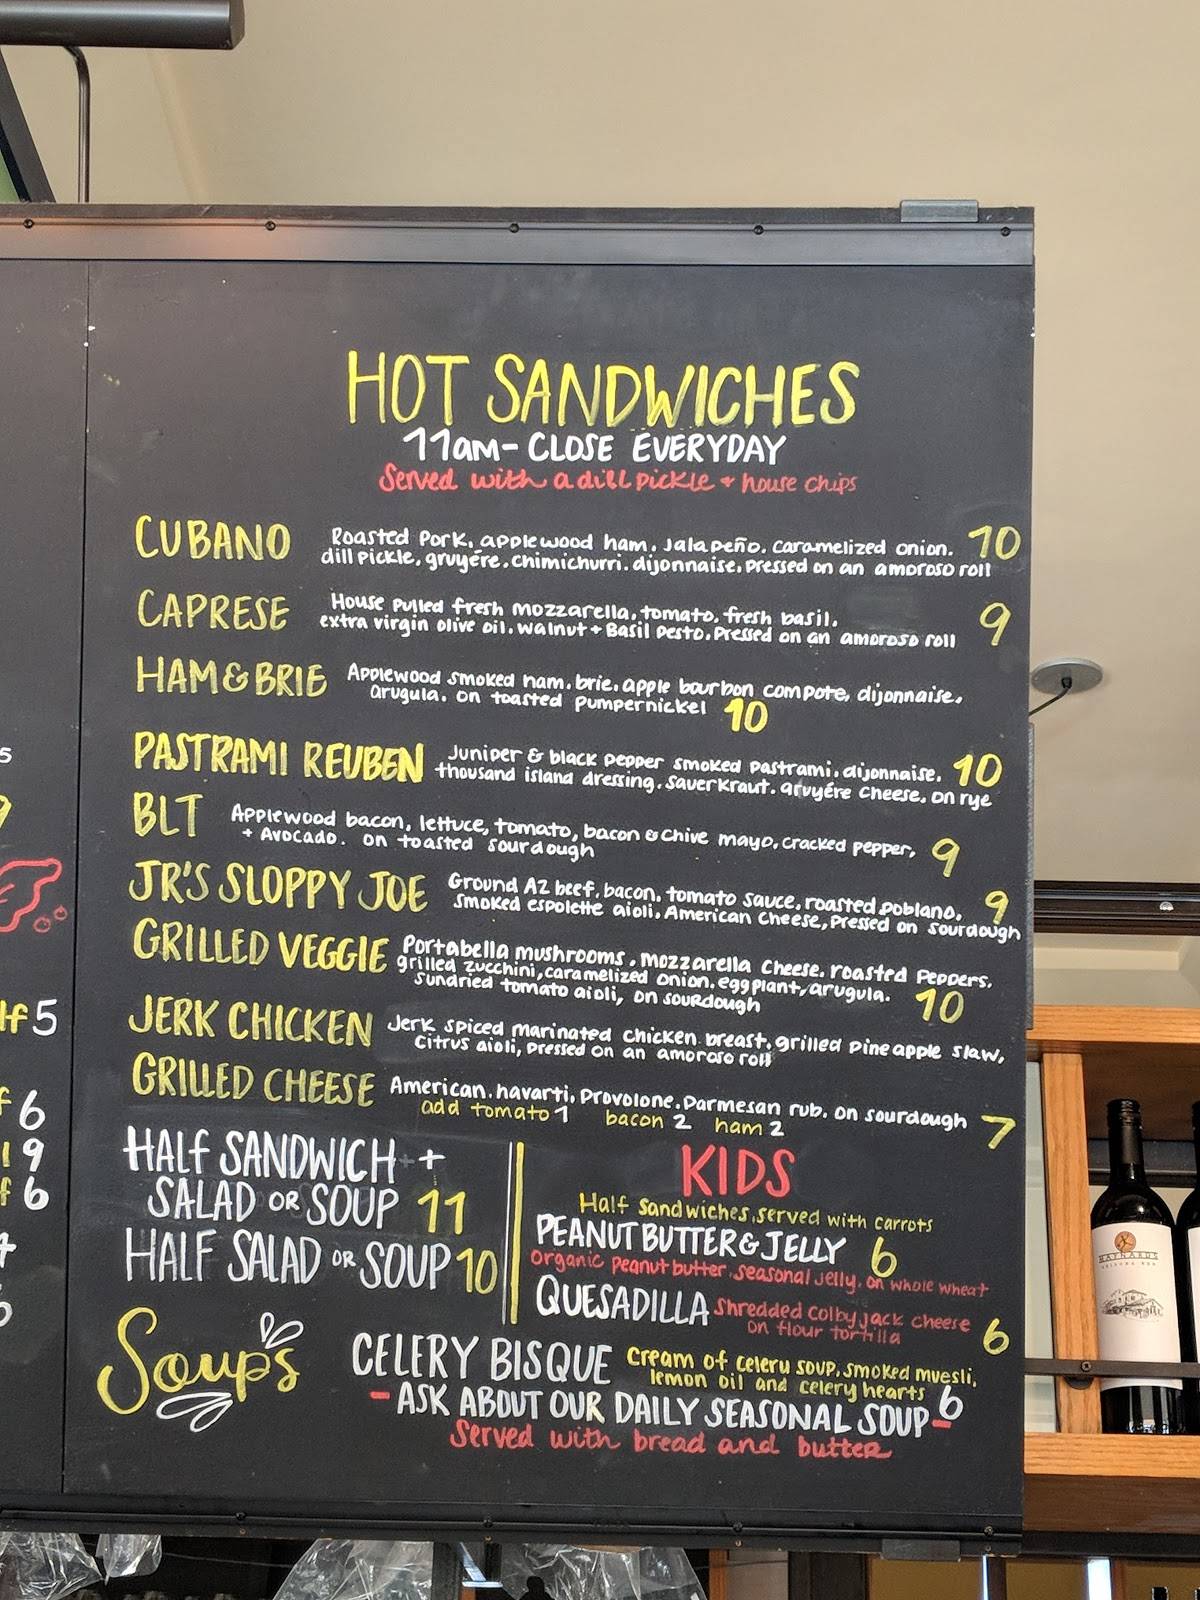 HOT SANDWICHES
11am - CLOSE EVERYDAY
Served with a dill pickle + house chips
CUBANO Roasted Pork, applewood ham, Jalapeño, caramelized onion, 10
dill pickle, gruyére, chimichurri, dijonnaise, pressed on an amoroso roll
CAPRESE House pulled fresh mozzarella, tomato, fresh basil, 9
extra virgin olive oil, walnut + Basil pesto, Pressed on an amoroso roll
HAM & BRIE Applewood smoked ham, brie, apple bourbon compote, dijonnaise,
arugula, on toasted pumpernickel 10
PASTRAMI REUBEN Juniper & black pepper smoked Pastrami, dijonnaise, 10
thousand island dressing, sauerkraut, gruyére cheese, on rye
BLT Applewood bacon, lettuce, tomato, bacon & chive mayo, cracked pepper, 9
+ Avocado. on toasted sourdough
JR'S SLOPPY JOE Ground AZ beef, bacon, tomato sauce, roasted poblano, 9
smoked espolette aioli, American cheese, pressed on sourdough
GRILLED VEGGIE Portabella mushrooms, mozzarella cheese, roasted peppers,
grilled zucchini, caramelized onion, eggplant, arugula.
sundried tomato aioli, on sourdough 10
JERK CHICKEN Jerk spiced marinated chicken breast, grilled pineapple slaw,
citrus aioli, pressed on an amoroso roll
GRILLED CHEESE American, havarti, provolone, parmesan rub, on sourdough 7
add tomato 1 bacon 2 ham 2
HALF SANDWICH +
SALAD OR SOUP 11
HALF SALAD OR SOUP 10
KIDS
Half sandwiches, served with carrots
PEANUT BUTTER & JELLY 6
organic peanut butter, seasonal jelly, on whole wheat
QUESADILLA shredded colby jack cheese
on flour tortilla 6
Soups
CELERY BISQUE cream of celery soup, smoked muesli,
lemon oil and celery hearts 6
- ASK ABOUT OUR DAILY SEASONAL SOUP -
Served with bread and butter
5
9
lf 5
f 6
l 9
f 6
MAYNARDS